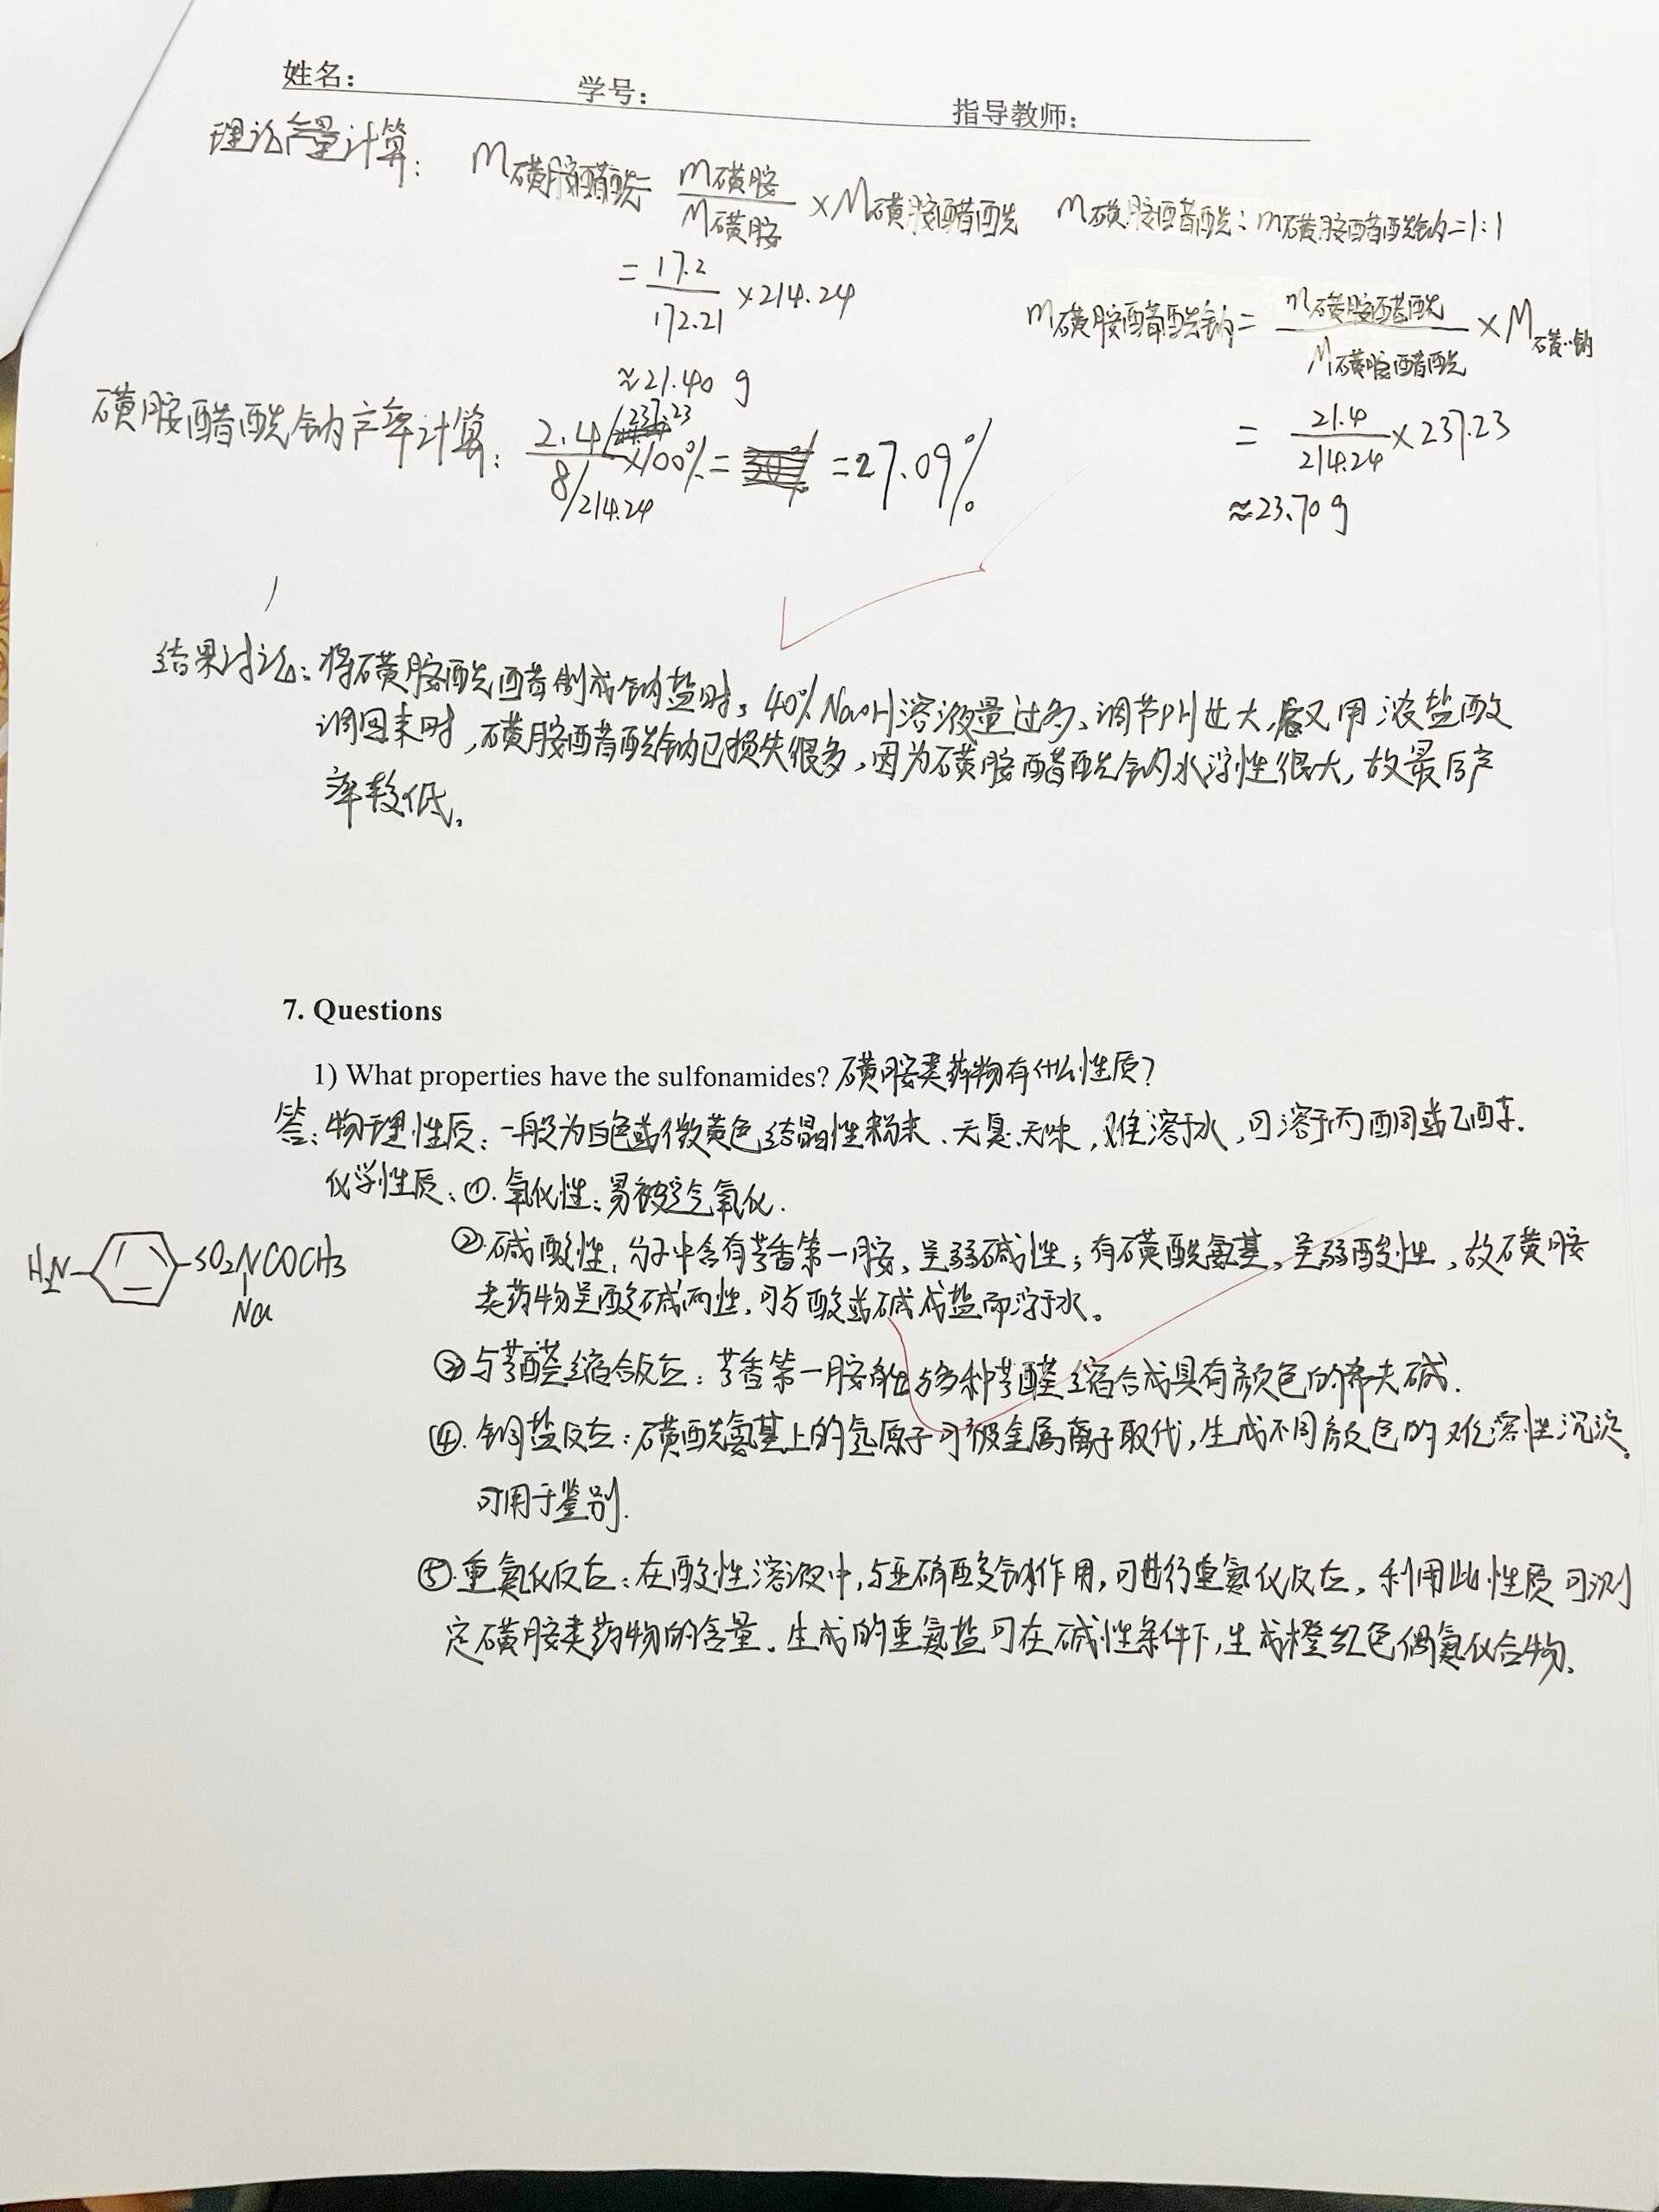 姓名： 学号： 指导教师：
理论产量计算： m磺胺醋酰= m磺胺/M磺胺 ×M磺胺醋酰 m磺胺醋酰：m磺胺醋酰钠=1:1
= 17.2/172.21 ×214.24
≈21.40 g
m磺胺醋酰钠= m磺胺醋酰/M磺胺醋酰 ×M磺··钠
= 21.4/214.24 ×237.23
≈23.70 g
磺胺醋酰钠产率计算： 2.4/237.23 / 8/214.24 ×100%= =27.09%
结果讨论：将磺胺酰醋制成钠盐时，40%NaOH溶液量过多、调节PH过大，后又用浓盐酸
调回来时，磺胺醋酰钠已损失很多，因为磺胺醋酰钠水溶性很大，故最后产
率较低。
7. Questions
1) What properties have the sulfonamides? 磺胺类药物有什么性质？
答：物理性质：一般为白色或微黄色结晶性粉末、无臭、无味，难溶于水，可溶于丙酮或乙醇.
化学性质：①.氧化性：易被空气氧化.
②.碱酸性，分子中含有芳香第一胺，呈弱碱性；有磺酰氨基，呈弱酸性，故磺胺
类药物呈酸碱两性，可与酸或碱成盐而溶于水。
H₂N SO₂NCOCH₃
Na
③与芳醛缩合反应：芳香第一胺能与多种芳醛缩合成具有颜色的希夫碱.
④.铜盐反应：磺酰氨基上的氢原子可被金属离子取代，生成不同颜色的难溶性沉淀。
可用于鉴别.
⑤.重氮化反应：在酸性溶液中，与亚硝酸钠作用，可进行重氮化反应，利用此性质可测
定磺胺类药物的含量。生成的重氮盐可在碱性条件下，生成橙红色偶氮化合物。